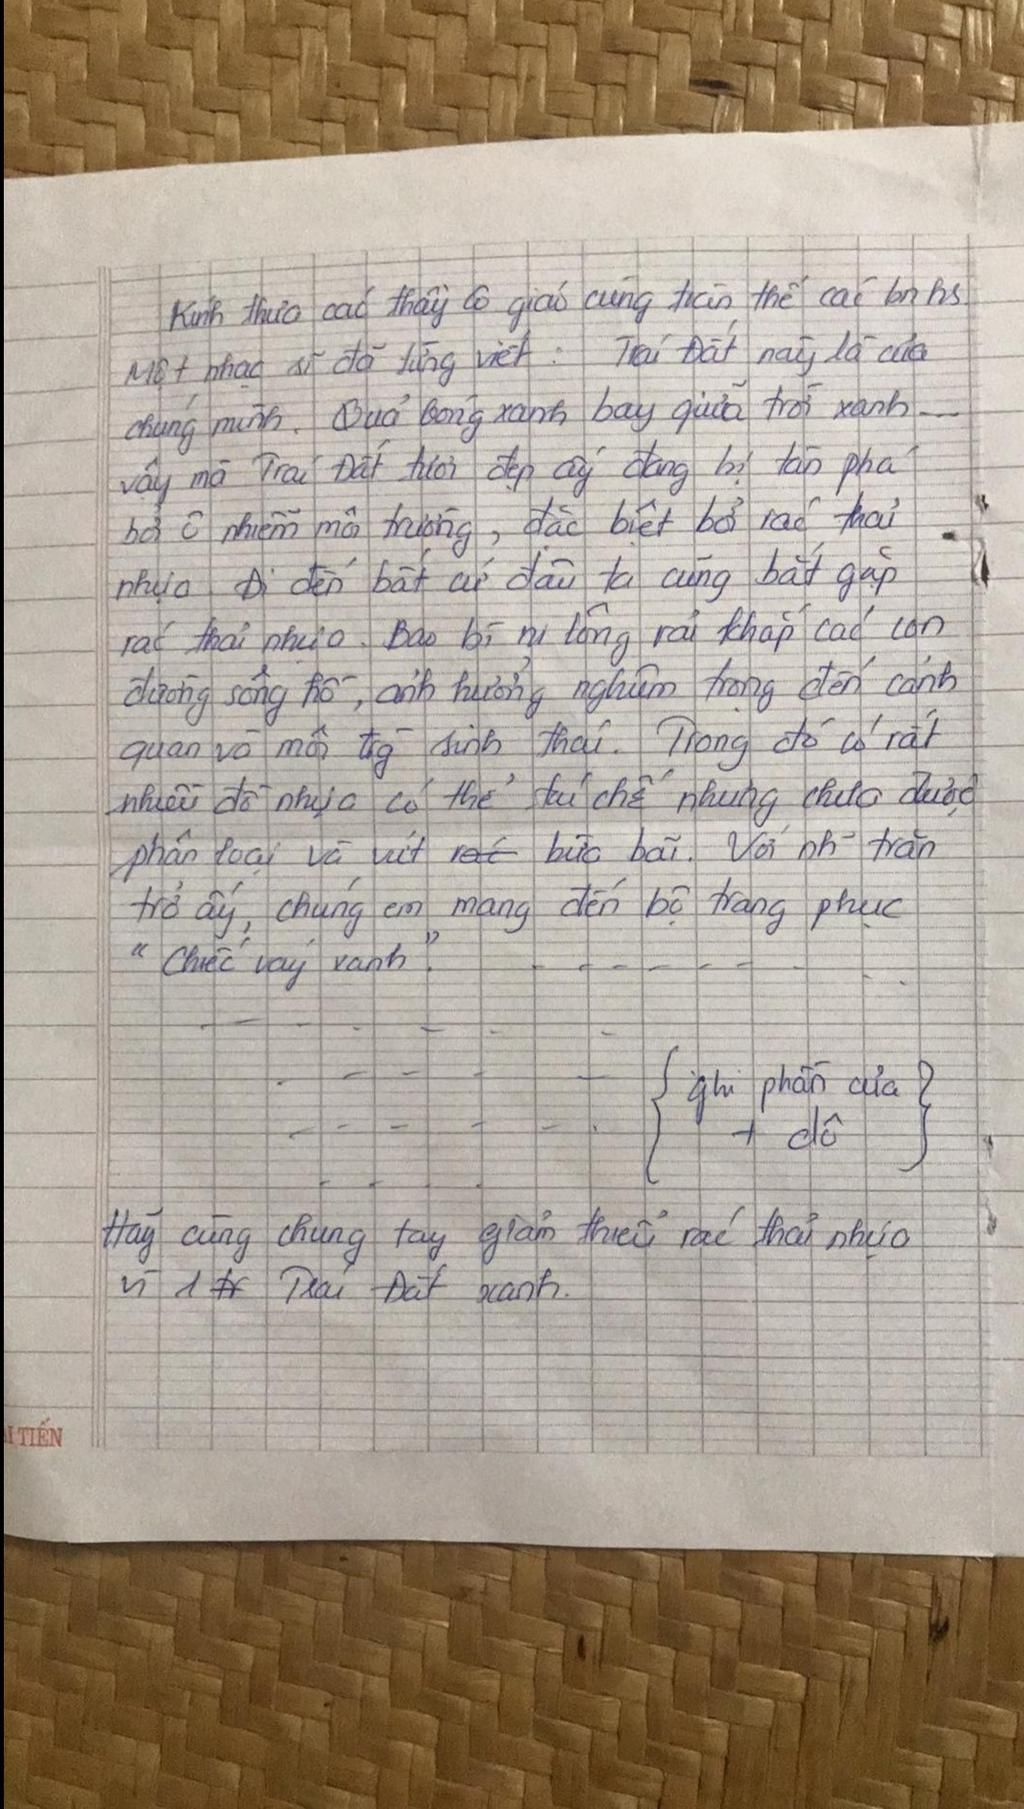 Kính thưa các thầy cô giáo cùng toàn thể các bn hs
Một nhạc sĩ đã từng viết : Trái Đất này là của
chúng mình. Quả bóng xanh bay giữa trời xanh ---
vậy mà Trái Đất tươi đẹp ấy đang bị tàn phá
bởi ô nhiễm môi trường, đặc biệt bởi rác thải
nhựa. Đi đến bất cứ đâu ta cũng bắt gặp
rác thải nhựa. Bao bì ni lông rải khắp các con
đường sông hồ, ảnh hưởng nghiêm trọng đến cảnh
quan và môi trg sinh thái. Trong đó có rất
nhiều đồ nhựa có thể tái chế nhưng chưa được
phân loại và vứt rác bừa bãi. Với nh~ trăn
trở ấy, chúng em mang đến bộ trang phục
"Chiếc váy xanh".
{ ghi phần của }
+ dô
Hãy cùng chung tay giảm thiểu rác thải nhựa
vì 1 Trái Đất xanh.
TIẾN